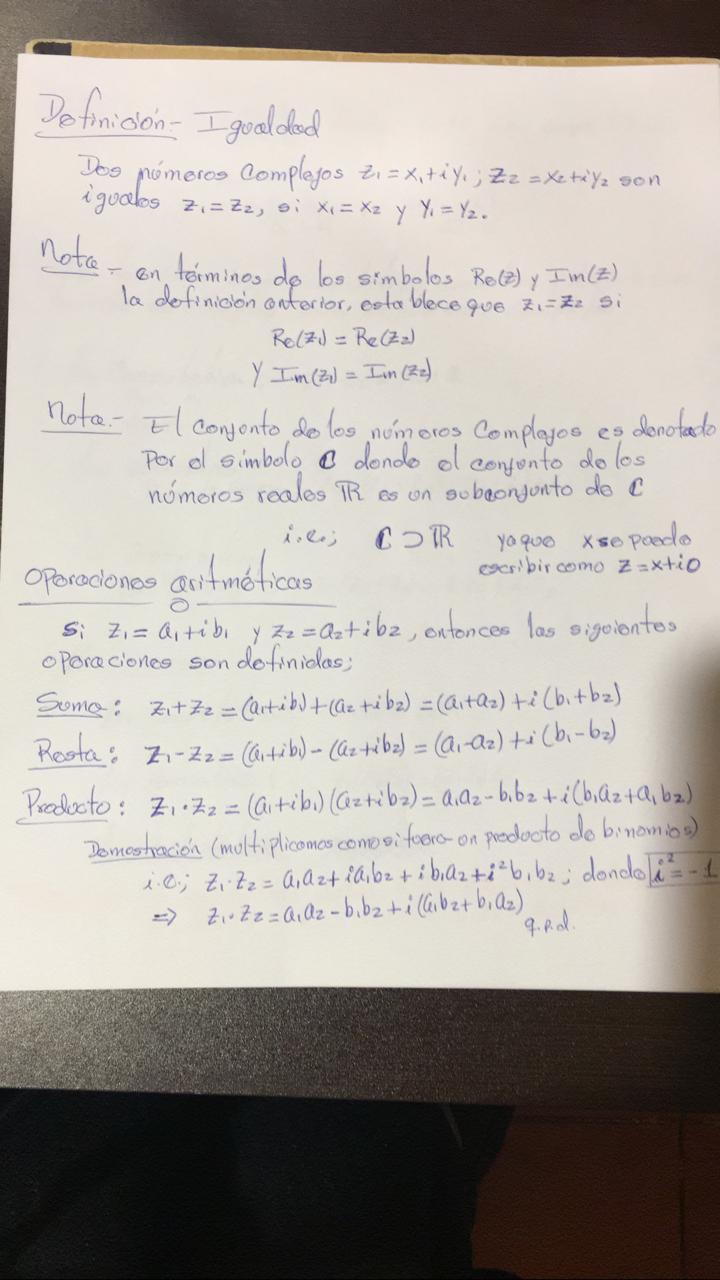 Definición.- Igualdad
Dos números Complejos z₁ = x₁ + iy₁ ; z₂ = x₂ + iy₂ son
iguales z₁ = z₂, si x₁ = x₂ y y₁ = y₂.
Nota.- en términos de los símbolos Re(z) y Im(z)
la definición anterior, establece que z₁ = z₂ si
Re(z₁) = Re(z₂)
y Im(z₁) = Im(z₂)
Nota.- El conjunto de los números Complejos es denotado
Por el símbolo ℂ donde el conjunto de los
números reales ℝ es un subconjunto de ℂ
i.e.; ℂ ⊃ ℝ ya que x se puede
escribir como z = x + i0
Operaciones aritméticas
Si z₁ = a₁ + ib₁ y z₂ = a₂ + ib₂, entonces las siguientes
operaciones son definidas;
Suma: z₁ + z₂ = (a₁ + ib₁) + (a₂ + ib₂) = (a₁ + a₂) + i(b₁ + b₂)
Resta: z₁ - z₂ = (a₁ + ib₁) - (a₂ + ib₂) = (a₁ - a₂) + i(b₁ - b₂)
Producto: z₁ · z₂ = (a₁ + ib₁)(a₂ + ib₂) = a₁a₂ - b₁b₂ + i(b₁a₂ + a₁b₂)
Demostración (multiplicamos como si fuera un producto de binomios)
i.e.; z₁ · z₂ = a₁a₂ + ia₁b₂ + ib₁a₂ + i²b₁b₂ ; donde i² = -1
⇒ z₁ · z₂ = a₁a₂ - b₁b₂ + i(a₁b₂ + b₁a₂)
q.e.d.